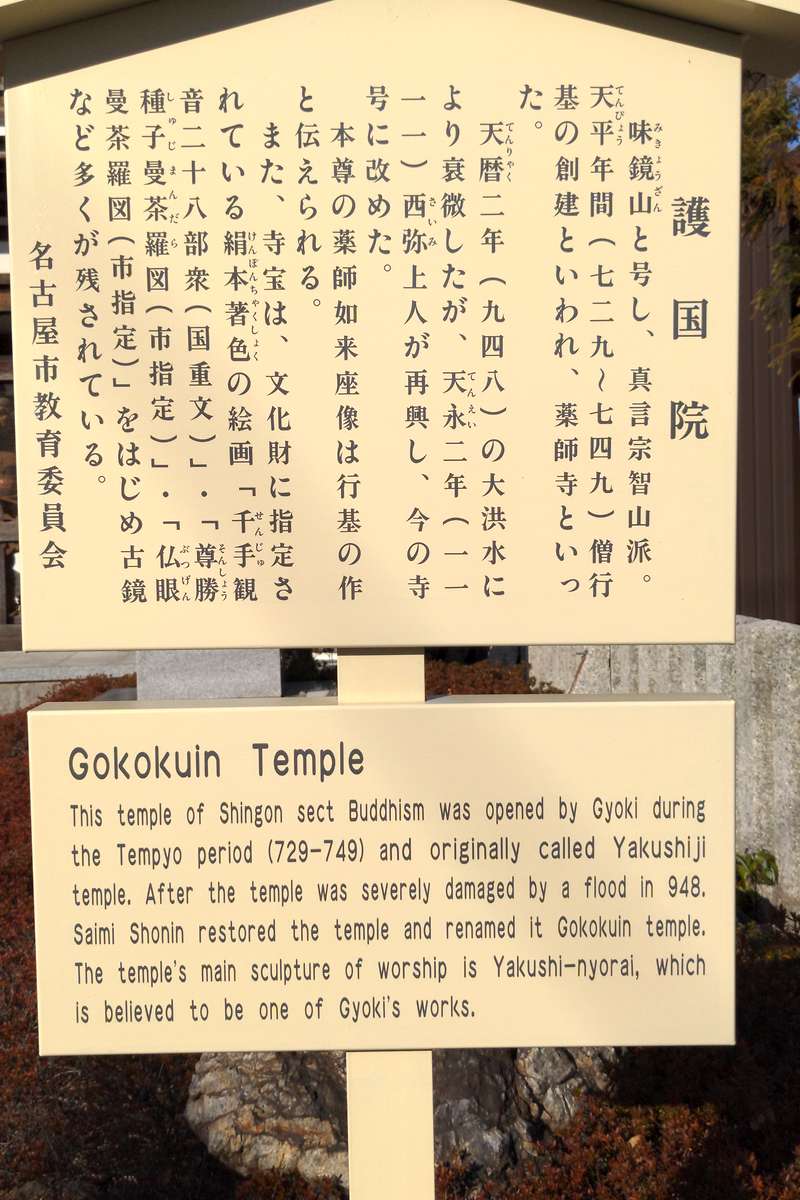 護国院
味鏡山と号し、真言宗智山派。
天平年間（七二九～七四九）僧行
基の創建といわれ、薬師寺といっ
た。
天暦二年（九四八）の大洪水に
より衰微したが、天永二年（一一
一一）西弥上人が再興し、今の寺
号に改めた。
本尊の薬師如来座像は行基の作
と伝えられる。
また、寺宝は、文化財に指定さ
れている絹本著色の絵画「千手観
音二十八部衆（国重文）」・「尊勝
種子曼荼羅図（市指定）」・「仏眼
曼荼羅図（市指定）」をはじめ古鏡
など多くが残されている。
名古屋市教育委員会
Gokokuin Temple
This temple of Shingon sect Buddhism was opened by Gyoki during
the Tempyo period (729-749) and originally called Yakushiji
temple. After the temple was severely damaged by a flood in 948.
Saimi Shonin restored the temple and renamed it Gokokuin temple.
The temple's main sculpture of worship is Yakushi-nyorai, which
is believed to be one of Gyoki's works.